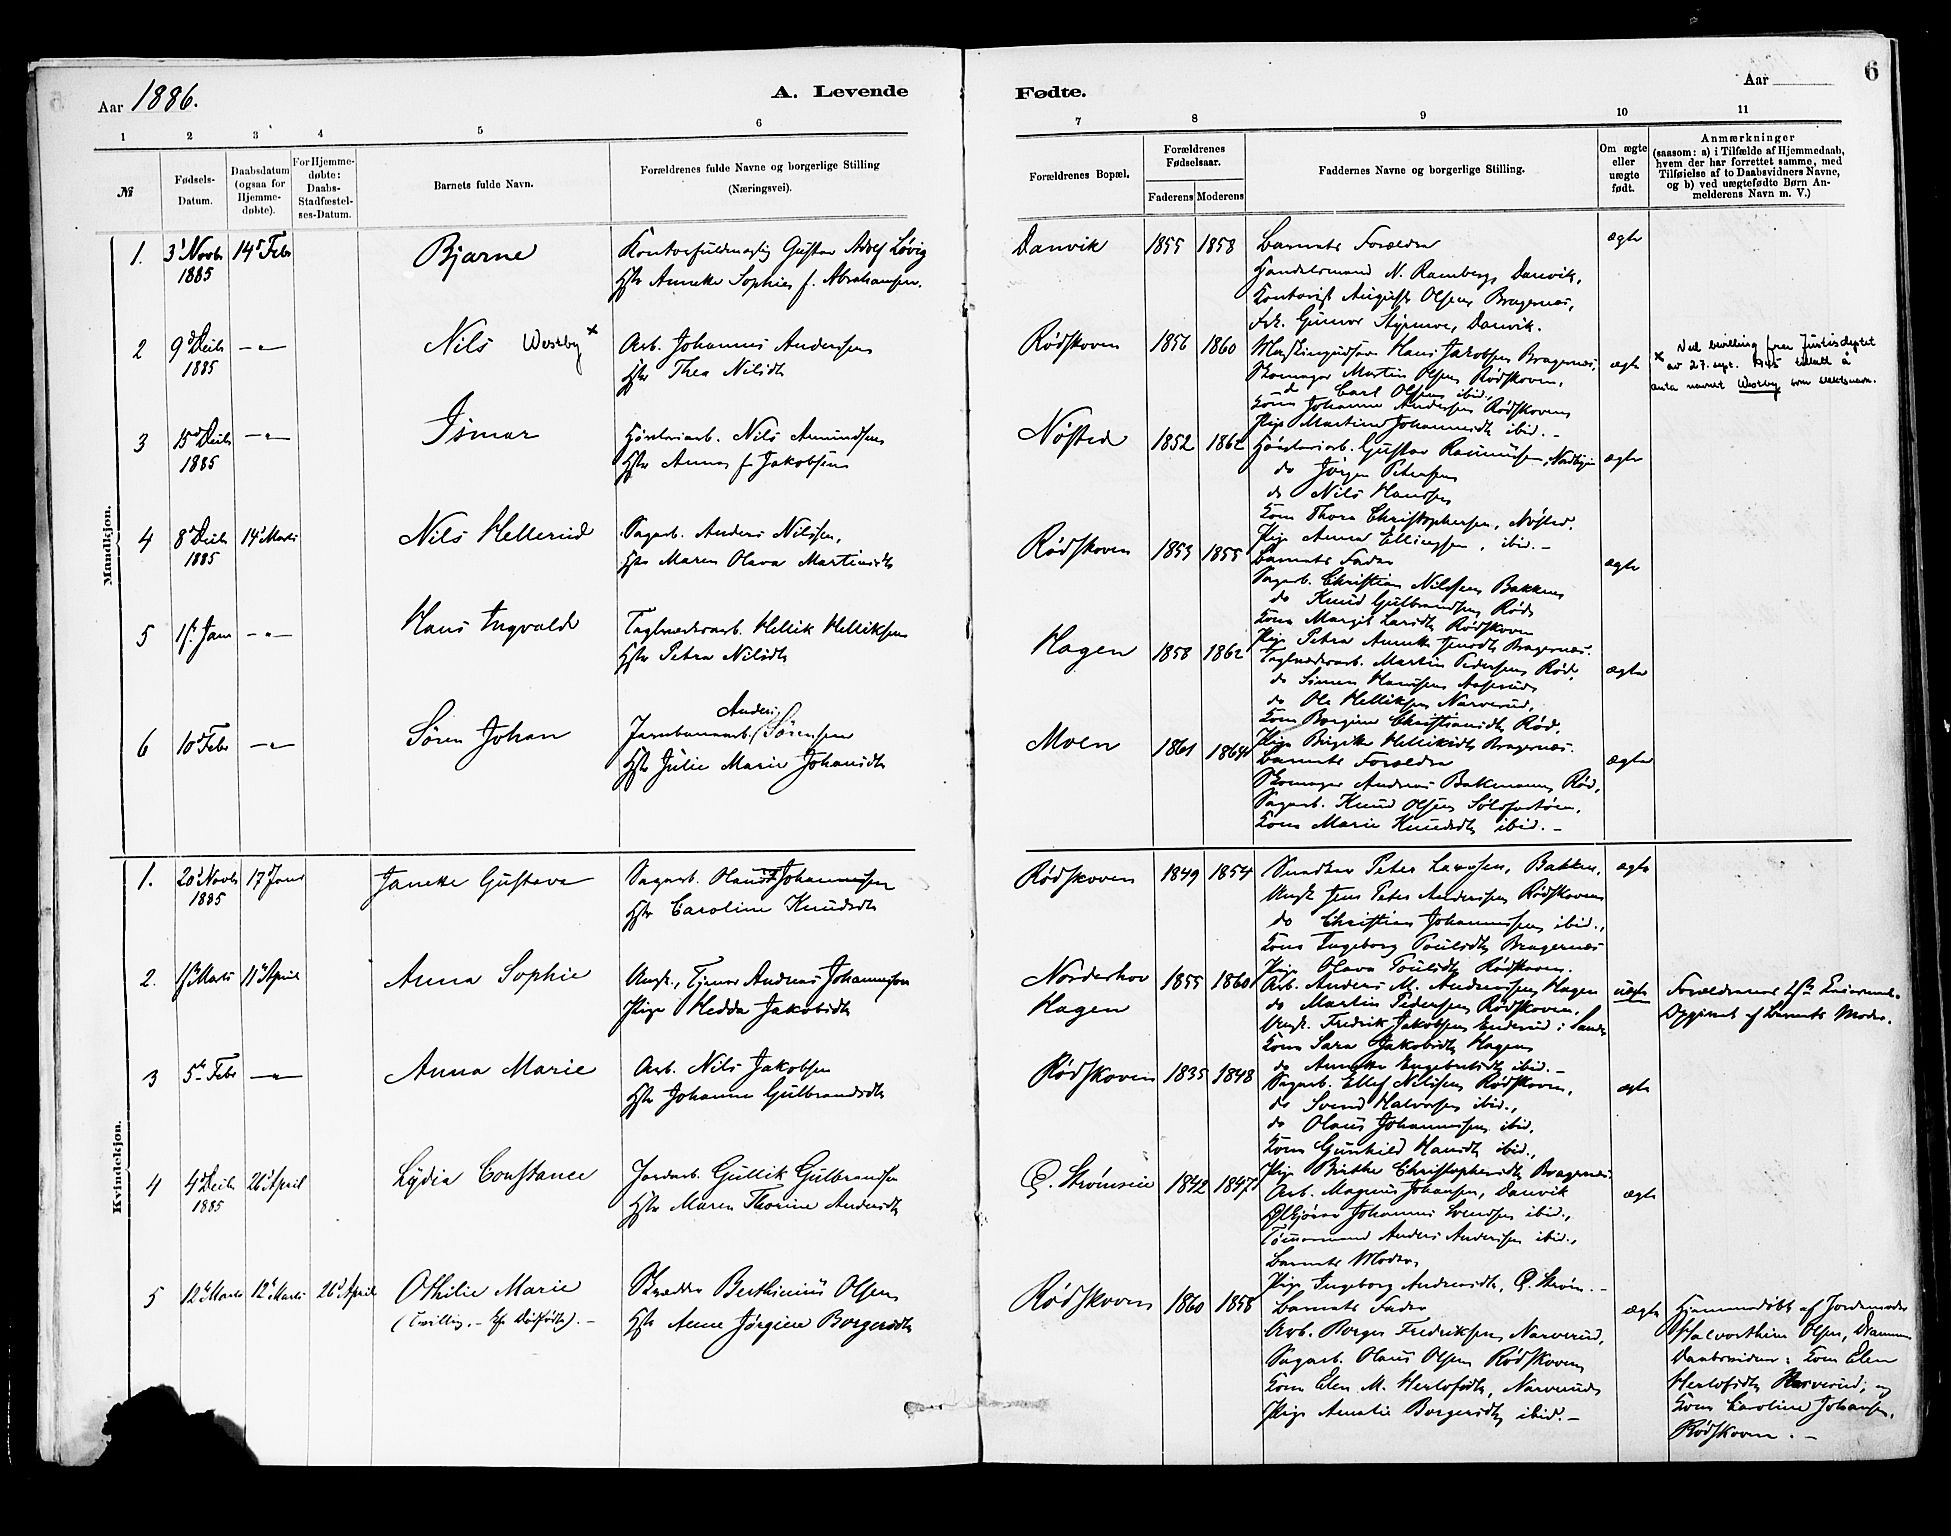 Aar 1886.
A. Levende
Fødte.
Aar
6
1 2 3 4 5 6 7 8 9 10 11
№
Fødsels-Datum.
Daabsdatum (ogsaa for Hjemmedøbte).
For Hjemmedøbte: Daabs-Stadfæstelses-Datum.
Barnets fulde Navn.
Forældrenes fulde Navne og borgerlige Stilling (Næringsvei).
Forældrenes Bopæl.
Forældrenes Fødselsaar.
Faderens Moderens
Faddernes Navne og borgerlige Stilling.
Om ægte eller uægte født.
Anmærkninger (saasom: a) i Tilfælde af Hjemmedaab, hvem der har forrettet samme, med Tilføielse af to Daabsvidners Navne, og b) ved uægtefødte Børn Anmelderens Navn m. V.)
Mandkjøn.
1. 3' Novb 1885 14' Febr Bjarne
Gustav Adolf Løvig
Hstr Anneke Sophie f. Abrahamsen.
Danvik 1855 1858 ægte
Barnets Forældre
Handelsmand N. Ramberg, Danvik,
Kontorist August Olsen Bragernæs,
Frk. Gunvor Danvik.
2 9 Decb 1885 —"— Nils Westby x
Arb. Johannes Andersen
Hstr Thea Nilsdtr
Rødskoven 1856 1860 ægte
Hans Jakobsen Bragernæs,
Skomager Martin Olsen Rødskoven,
do Carl Olsen ibid.,
Kone Johanne Andersen Rødskoven
Pige Martine Johannesdtr ibid. –
x Ved bevilling fra Justisdeptet
av 27. sept. tillatt å
anta navnet Westby som slektsnavn.
3 15 Decb 1885 —"— Ismar
Nils Amundsen
Hstr Anna f. Jakobsen
Nøsted 1852 1862 ægte
Gustav Rasmussen,
do Jørgen Petersen
do Nils Hansen
Kone Thora Christophersen, Nøsted.
Pige Anna Ellingsen, ibid. –
4 8 Decb 1885 14 Marts Nils Hellerud
Sagarb. Anders Nilssen,
Hstr Maren Olava Martinsdtr
Rødskoven 1853 1855 ægte
Barnets Fader
Sagarb. Christian Nilssen Bakken
do Knud Gulbrandsen Rød
Kone Margit Larsdtr Rødskoven
Pige Petra Anneke Jensdtr Bragernæs.
5 1ste Jan —"— Hans Ingvald
Teglværksarb. Hellik Helliksen
Hstr Petra Nilsdtr
Hagen 1858 1862 ægte
Teglværksarb. Martin Pedersen Rød,
do Simen Hansen Aaserud
do Ole Helliksen Narverud,
Kone Borgine Christiansdtr Rød.
Pige Birgitte Helliksdtr Bragernæs.
6 10 Febr —"— Søren Johan
Anders
Jernbanearb. Sørensen
Hstr Julie Marie Johansdtr
Moen 1861 1864 ægte
Barnets Forældre
Skomager Andreas Bakmann, Rød,
Sagarb. Knud Olsen
Kone Marie Knudsdtr ibid. –
Kvindekjøn.
1. 20' Novb 1885 17' Janr Janeke Gustava
Sagarb. Olaus Johannessen
Hstr Caroline Knudsdtr
Rødskoven 1849 1854 ægte
Snedker Peter Larssen, Bakken,
Ungk. Jens Peter Andersen Rødskoven
do Christian Johannessen ibid.,
Kone Ingeborg Poulsdtr Bragernæs
Pige Olava Poulsdtr Rødskoven.
2. 1ste Marts 11' April Anna Sophie
Ungk., Tjener Andreas Johannessen
Pige Hedda Jakobsdtr
Norderhov
Hagen
1855 1860 uægte
Arb. Anders M. Andersen, Hagen
do Martin Pedersen Rødskoven.
Ungk. Fredrik Jakobsen
Kone Sara Jakobsdtr Hagen
do Anneke Engebretsdtr ibid. –
Forældrenes 1ste Leiermaal.
Opgivet af Barnets Moder.
3 5te Febr —"— Anna Marie
Arb. Nils Jakobsen
Hstr Johanne Gulbrandsdtr
Rødskoven 1835 1848 ægte
Sagarb. Ellef Nilssen Rødskoven,
do Svend Halvorsen ibid.,
do Olaus Johannessen ibid,
Kone Gunhild Hansdtr ibid.,
Pige Birthe Christophersdtr Bragernæs.
4 4 Decb 1885 26' April Lydia Constance
Jordarb. Gullik Gulbrandsen
Hstr Maren Thorine Andersdtr
1842 1847 ægte
Arb. Magnus Johansen, Danvik
Johannes Svendsen ibid.,
Tømmermand Anders Andersen ibid.,
Barnets Moder
Pige Ingeborg Andersdtr,
5 12 Marts 12 Marts 26 April Othilie Marie
(Tvilling. – Dødfødt). –
Skrædder Berthinius Olsen
Hstr Anne Jørgine Borgersdtr
Rødskoven 1860 1858 ægte
Barnets Fader
Arb. Borger Fredriksen, Narverud,
Sagarb. Olaus Olsen Rødskoven
Kone Elen M. Herlofsdtr, Narverud
Pige Amalie Borgersdtr ibid. –
Hjemmedøbt af Jordemoder
Olsen, Drammen
Daabsvidner: Kone Elen
Herlofsdtr Narverud, og
Kone Caroline Johansen,
Rødskoven. –